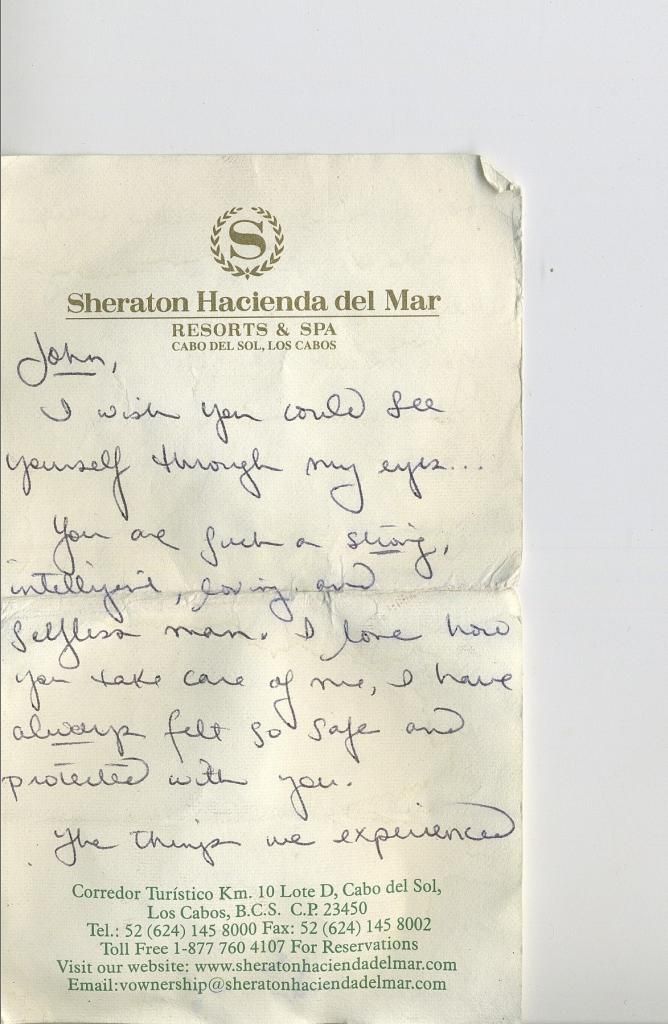 S
Sheraton Hacienda del Mar
RESORTS & SPA
CABO DEL SOL, LOS CABOS
John,
I wish you could see
yourself through my eyes...
You are such a strong,
intelligent, loving and
selfless man. I love how
you take care of me, I have
always felt so safe and
protected with you.
The things we experienced
Corredor Turístico Km. 10 Lote D, Cabo del Sol,
Los Cabos, B.C.S. C.P. 23450
Tel.: 52 (624) 145 8000 Fax: 52 (624) 145 8002
Toll Free 1-877 760 4107 For Reservations
Visit our website: www.sheratonhaciendadelmar.com
Email:vownership@sheratonhaciendadelmar.com